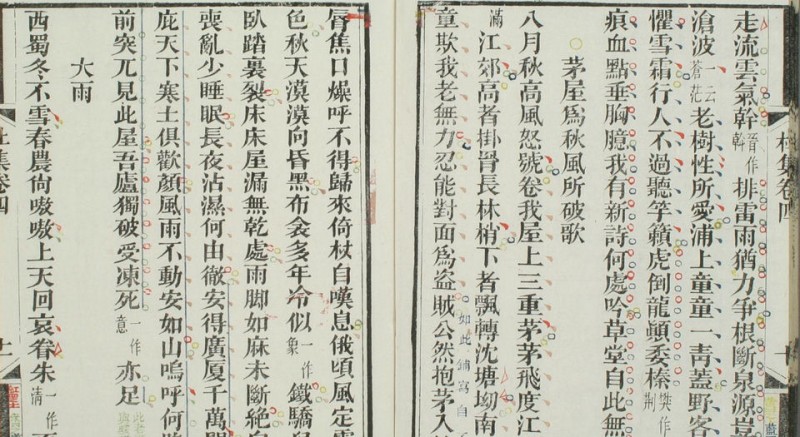 杜集卷四
走流雲氣幹晉作榦排雷雨猶力爭根斷泉源豈
滄波一云蒼茫老樹性所愛浦上童童一青蓋野客
懼雪霜行人不過聽竽籟虎倒龍顛委榛樊作荆
痕血點垂胸臆我有新詩何處吟草堂自此無
茅屋爲秋風所破歌
八月秋高風怒號卷我屋上三重茅茅飛度江
滿江郊高者掛罥長林梢下者飄轉沈塘坳南
童欺我老無力忍能對面爲盜賊公然抱茅入
脣焦口燥呼不得歸來倚杖自嘆息俄頃風定
色秋天漠漠向昏黑布衾多年冷似一作象鐵驕兒
臥踏裏裂床床屋漏無乾處雨脚如麻未斷絕自
喪亂少睡眠長夜沾濕何由徹安得廣厦千萬間
庇天下寒士俱歡顏風雨不動安如山嗚呼何時
前突兀見此屋吾廬獨破受凍死一作意亦足
大雨
西蜀冬不雪春農尚嗷嗷上天回哀眷朱一作清
杜集卷四